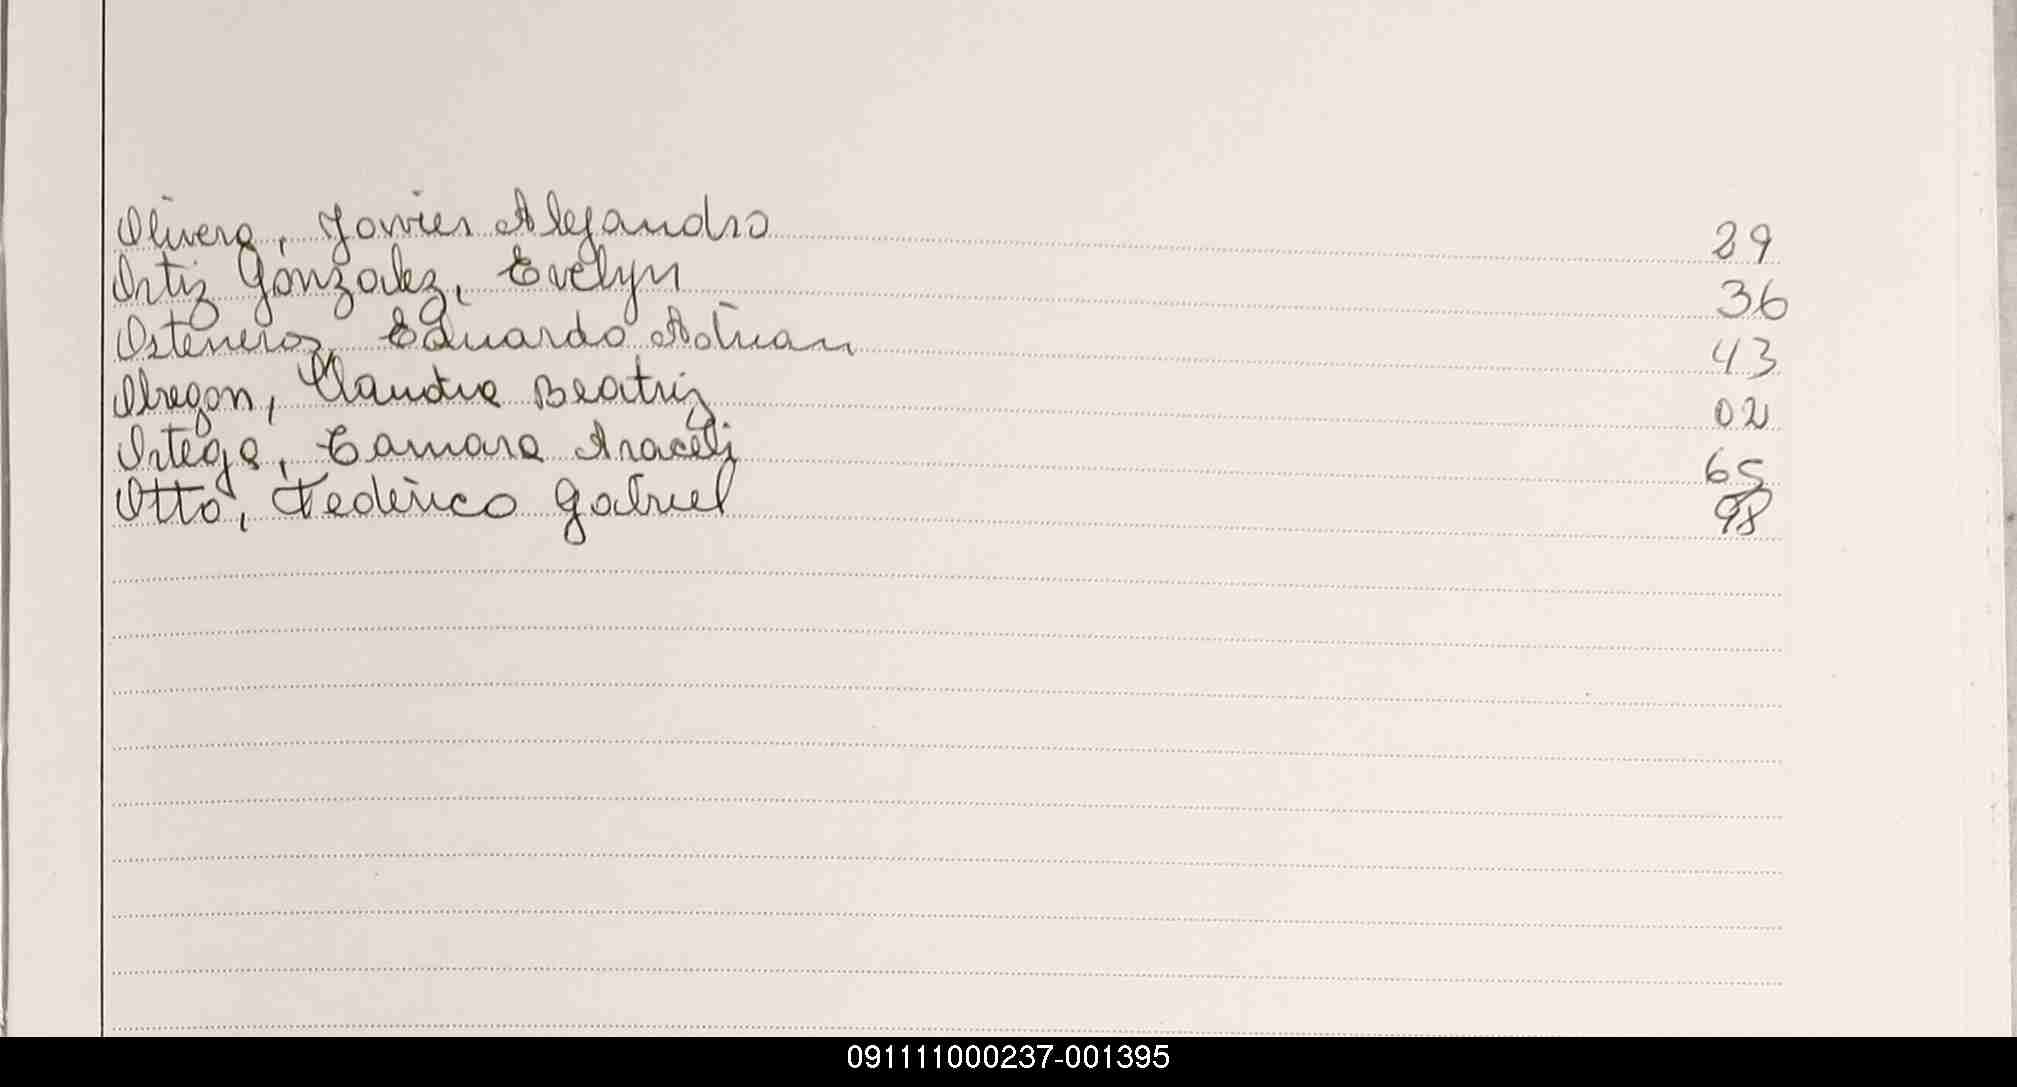 Olivera, Javier Alejandro 29
Ortiz Gonzalez, Evelyn 36
Eduardo Adrian 43
Obregon, Claudia Beatriz 02
Ortega, Tamara Araceli 65
Otto, Federico Gabriel 98
091111000237-001395